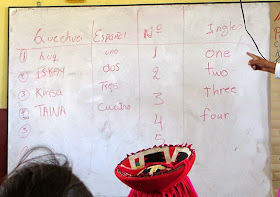 Quechua Español Nº Ingles
① huq uno 1 one
② ISKAY dos 2 two
③ Kinsa tres 3 three
④ TAWA Cuatro 4 four
⑤ 5